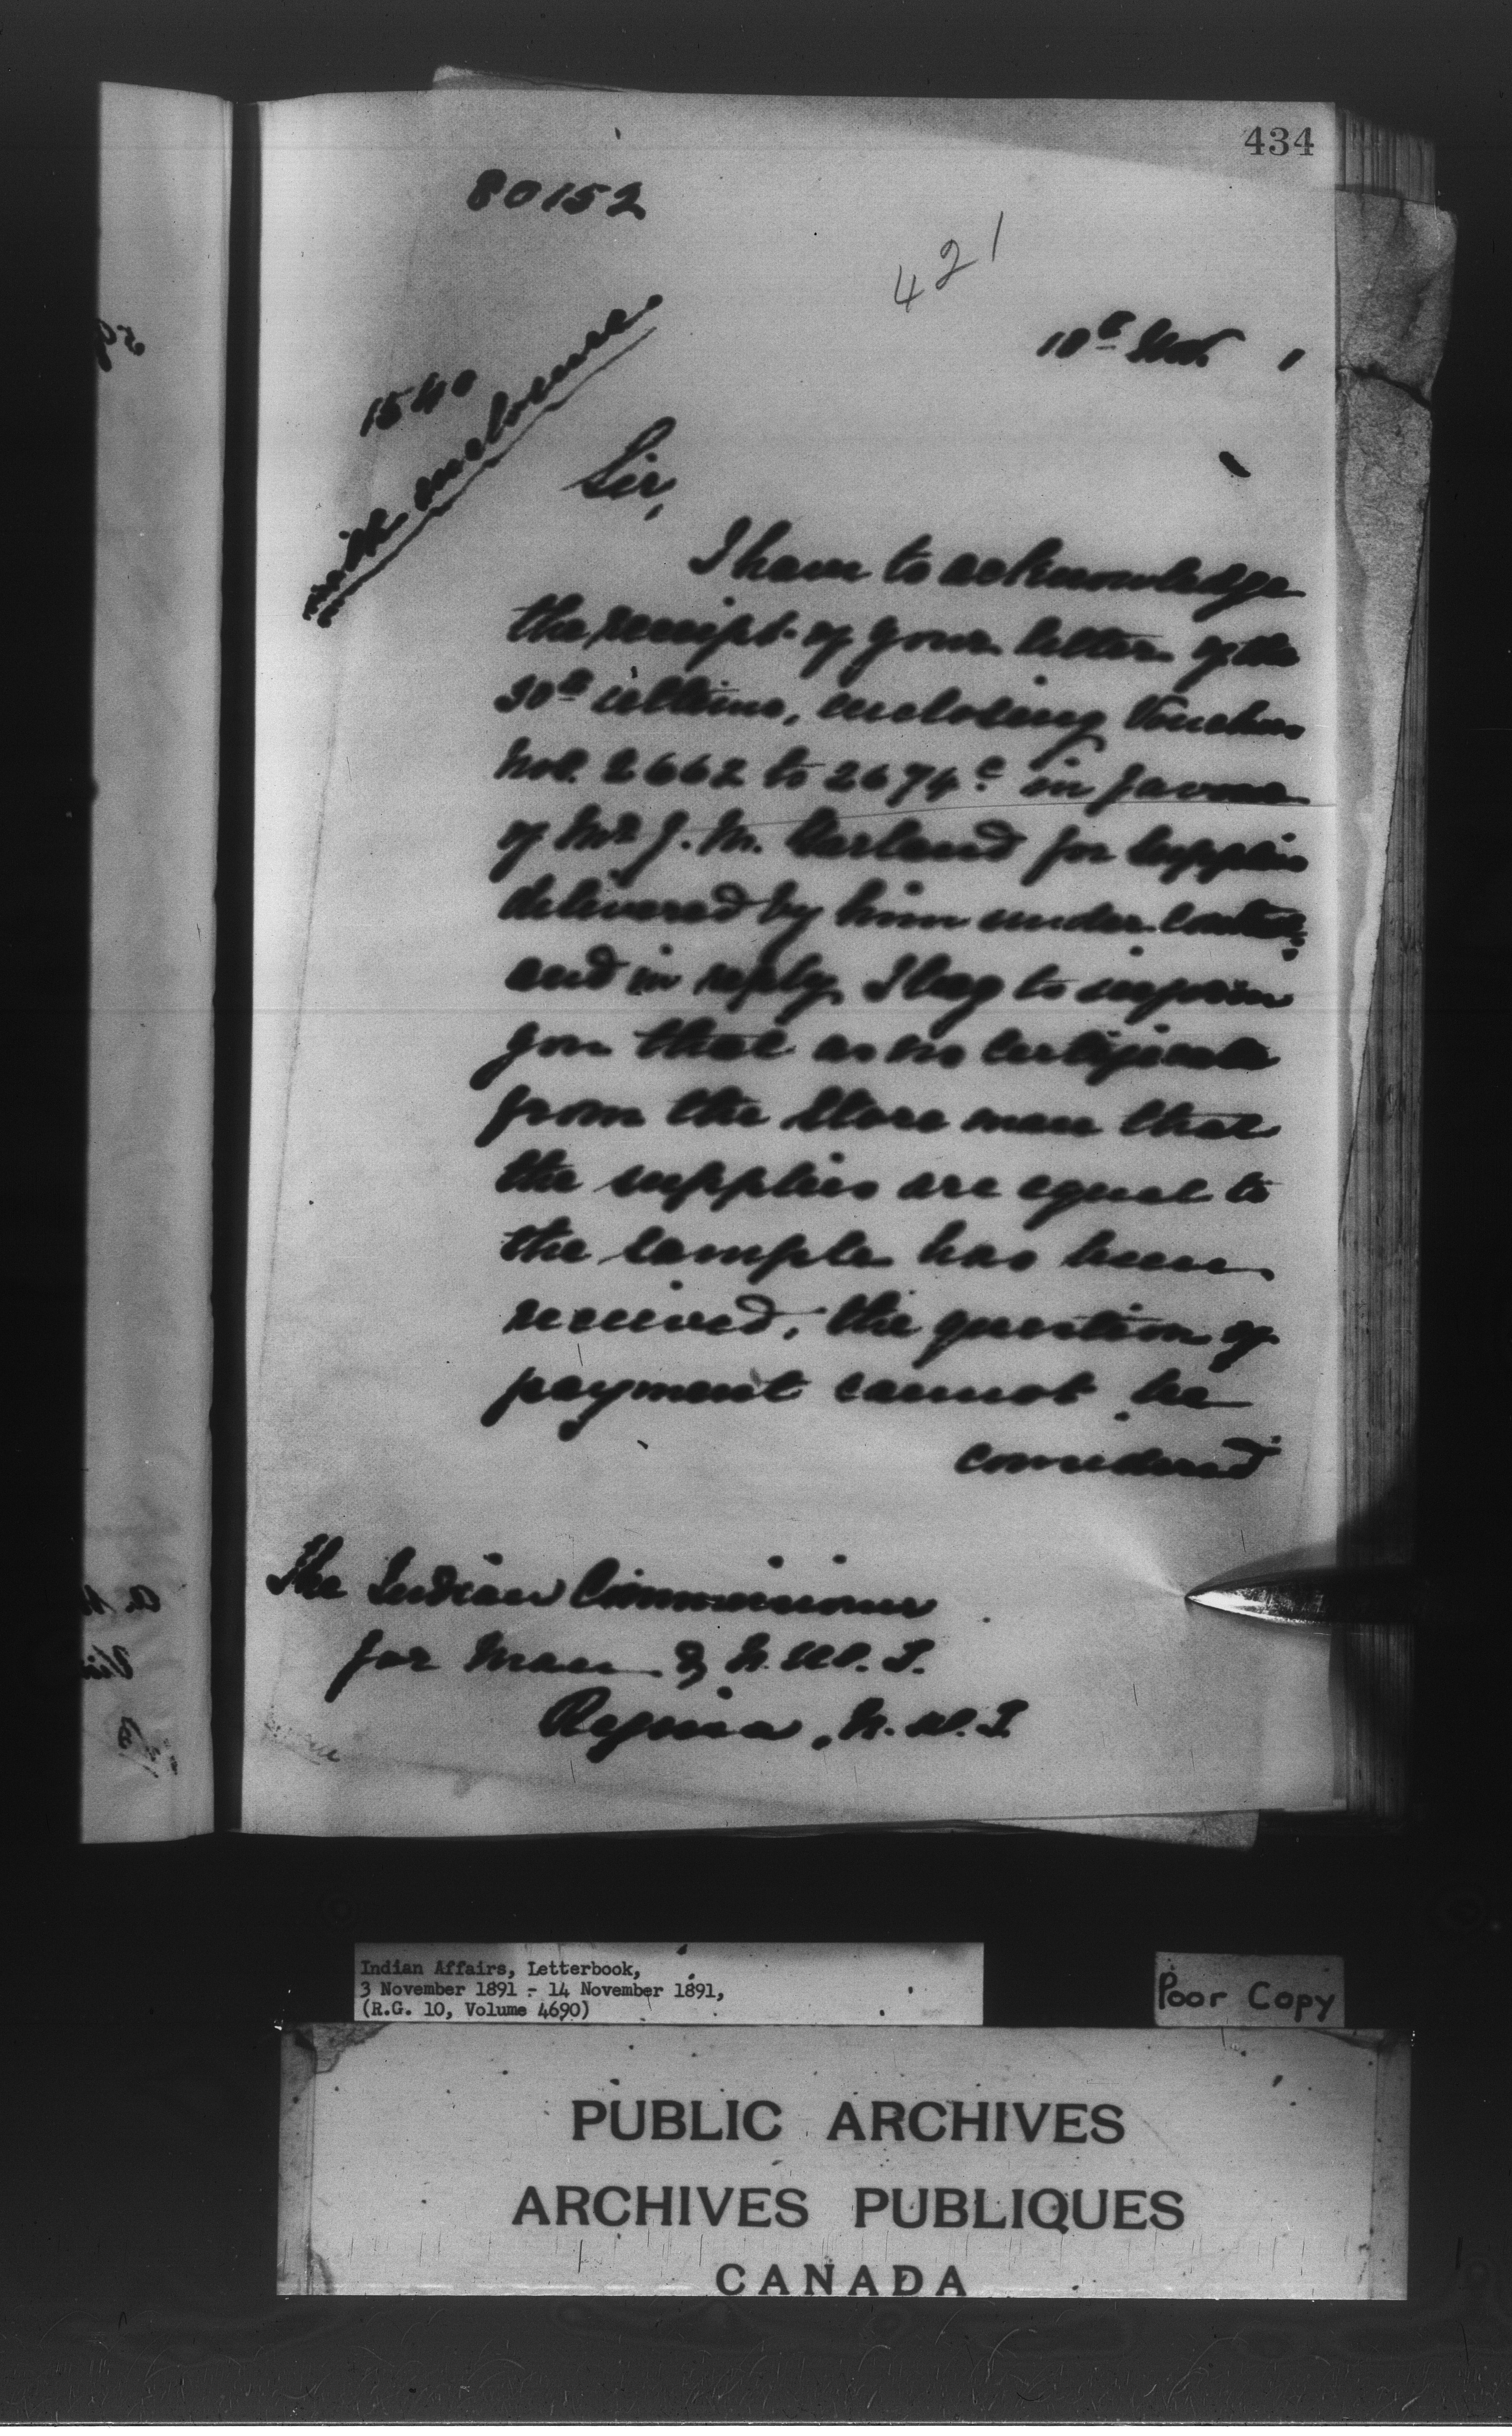 434
80152
421
10th Nov. 1
1540
with enclosure.
Sir,
I have to acknowledge
the receipt of your letter of the
30th ultimo, enclosing Vouchers
Nos. 2662 to 2674c in favour
of Mr J. M. Garland for supplies
delivered by him under contract;
and in reply I beg to inform
you that as no certificate
from the Store man that
the supplies are equal to
the sample has been
received, the question of
payment cannot be
considered
The Indian Commissioner
for Man & N.W.T.
Regina, N.W.T.
Indian Affairs, Letterbook,
3 November 1891 - 14 November 1891,
(R.G. 10, Volume 4690)
Poor Copy
PUBLIC ARCHIVES
ARCHIVES PUBLIQUES
CANADA